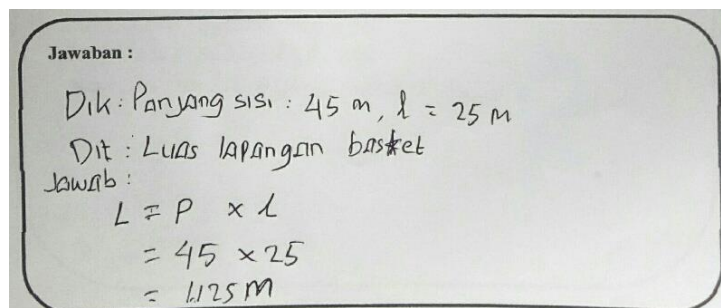 Jawaban :
Dik : Panjang sisi : 45 m, l = 25 m
Dit : Luas lapangan basket
Jawab :
L = P x l
= 45 x 25
= 1.125 M